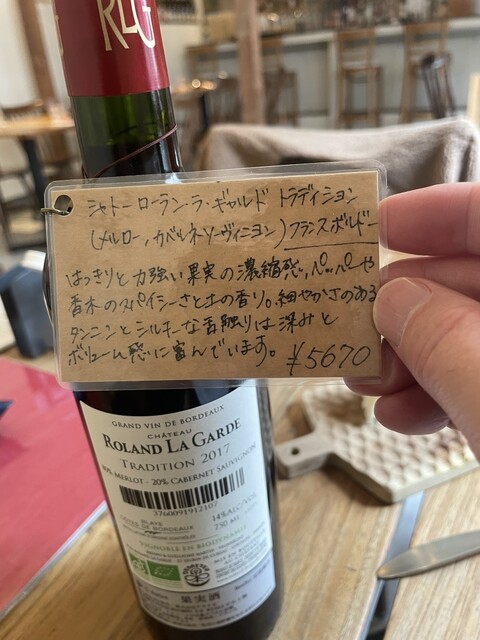 RLG
シャトーローラン・ラ・ギャルド トラディション
(メルロー, カベルネ・ソーヴィニヨン) フランスボルドー
はっきりと力強い果実の濃縮感。ペッパーや
香木のスパイシーさと土の香り。細やかさのある
タンニンとシルキーな舌触りは深みと
ボリューム感に富んでいます。 ¥5670
GRAND VIN DE BORDEAUX
CHÂTEAU
ROLAND LA GARDE
TRADITION 2017
80% MERLOT - 20% CABERNET SAUVIGNON
3760091912107
14% ALC/VOL
BLAYE
CÔTES DE BORDEAUX
750 ML
VIGNOBLE EN BIODYNAMIE
果実酒